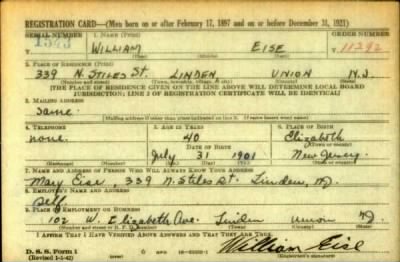 REGISTRATION CARD—(Men born on or after February 17, 1897 and on or before December 31, 1921)
SERIAL NUMBER 1. NAME (Print) ORDER NUMBER
T 1343 WILLIAM EISE T 11392
(First) (Middle) (Last)
2. PLACE OF RESIDENCE (Print)
339 N. STILES ST. LINDEN UNION N.J.
(Number and street) (Town, township, village, or city) (County) (State)
[THE PLACE OF RESIDENCE GIVEN ON THE LINE ABOVE WILL DETERMINE LOCAL BOARD
JURISDICTION; LINE 2 OF REGISTRATION CERTIFICATE WILL BE IDENTICAL]
3. MAILING ADDRESS
Same.
[Mailing address if other than place indicated on line 2. If same insert word same]
4. TELEPHONE 5. AGE IN YEARS 6. PLACE OF BIRTH
none. 40 Elizabeth
DATE OF BIRTH (Town or county)
July 31 1901 New Jersey
(Exchange) (Number) (Mo.) (Day) (Yr.) (State or country)
7. NAME AND ADDRESS OF PERSON WHO WILL ALWAYS KNOW YOUR ADDRESS
Mary Eise 339 N. Stiles St. Linden, NJ.
8. EMPLOYER'S NAME AND ADDRESS
Self
9. PLACE OF EMPLOYMENT OR BUSINESS
102 W. Elizabeth Ave. Linden Union NJ.
(Number and street or R. F. D. number) (Town) (County) (State)
I AFFIRM THAT I HAVE VERIFIED ABOVE ANSWERS AND THAT THEY ARE TRUE.
D. S. S. Form 1
(Revised 1-1-42) William Eise
(Registrant's signature)